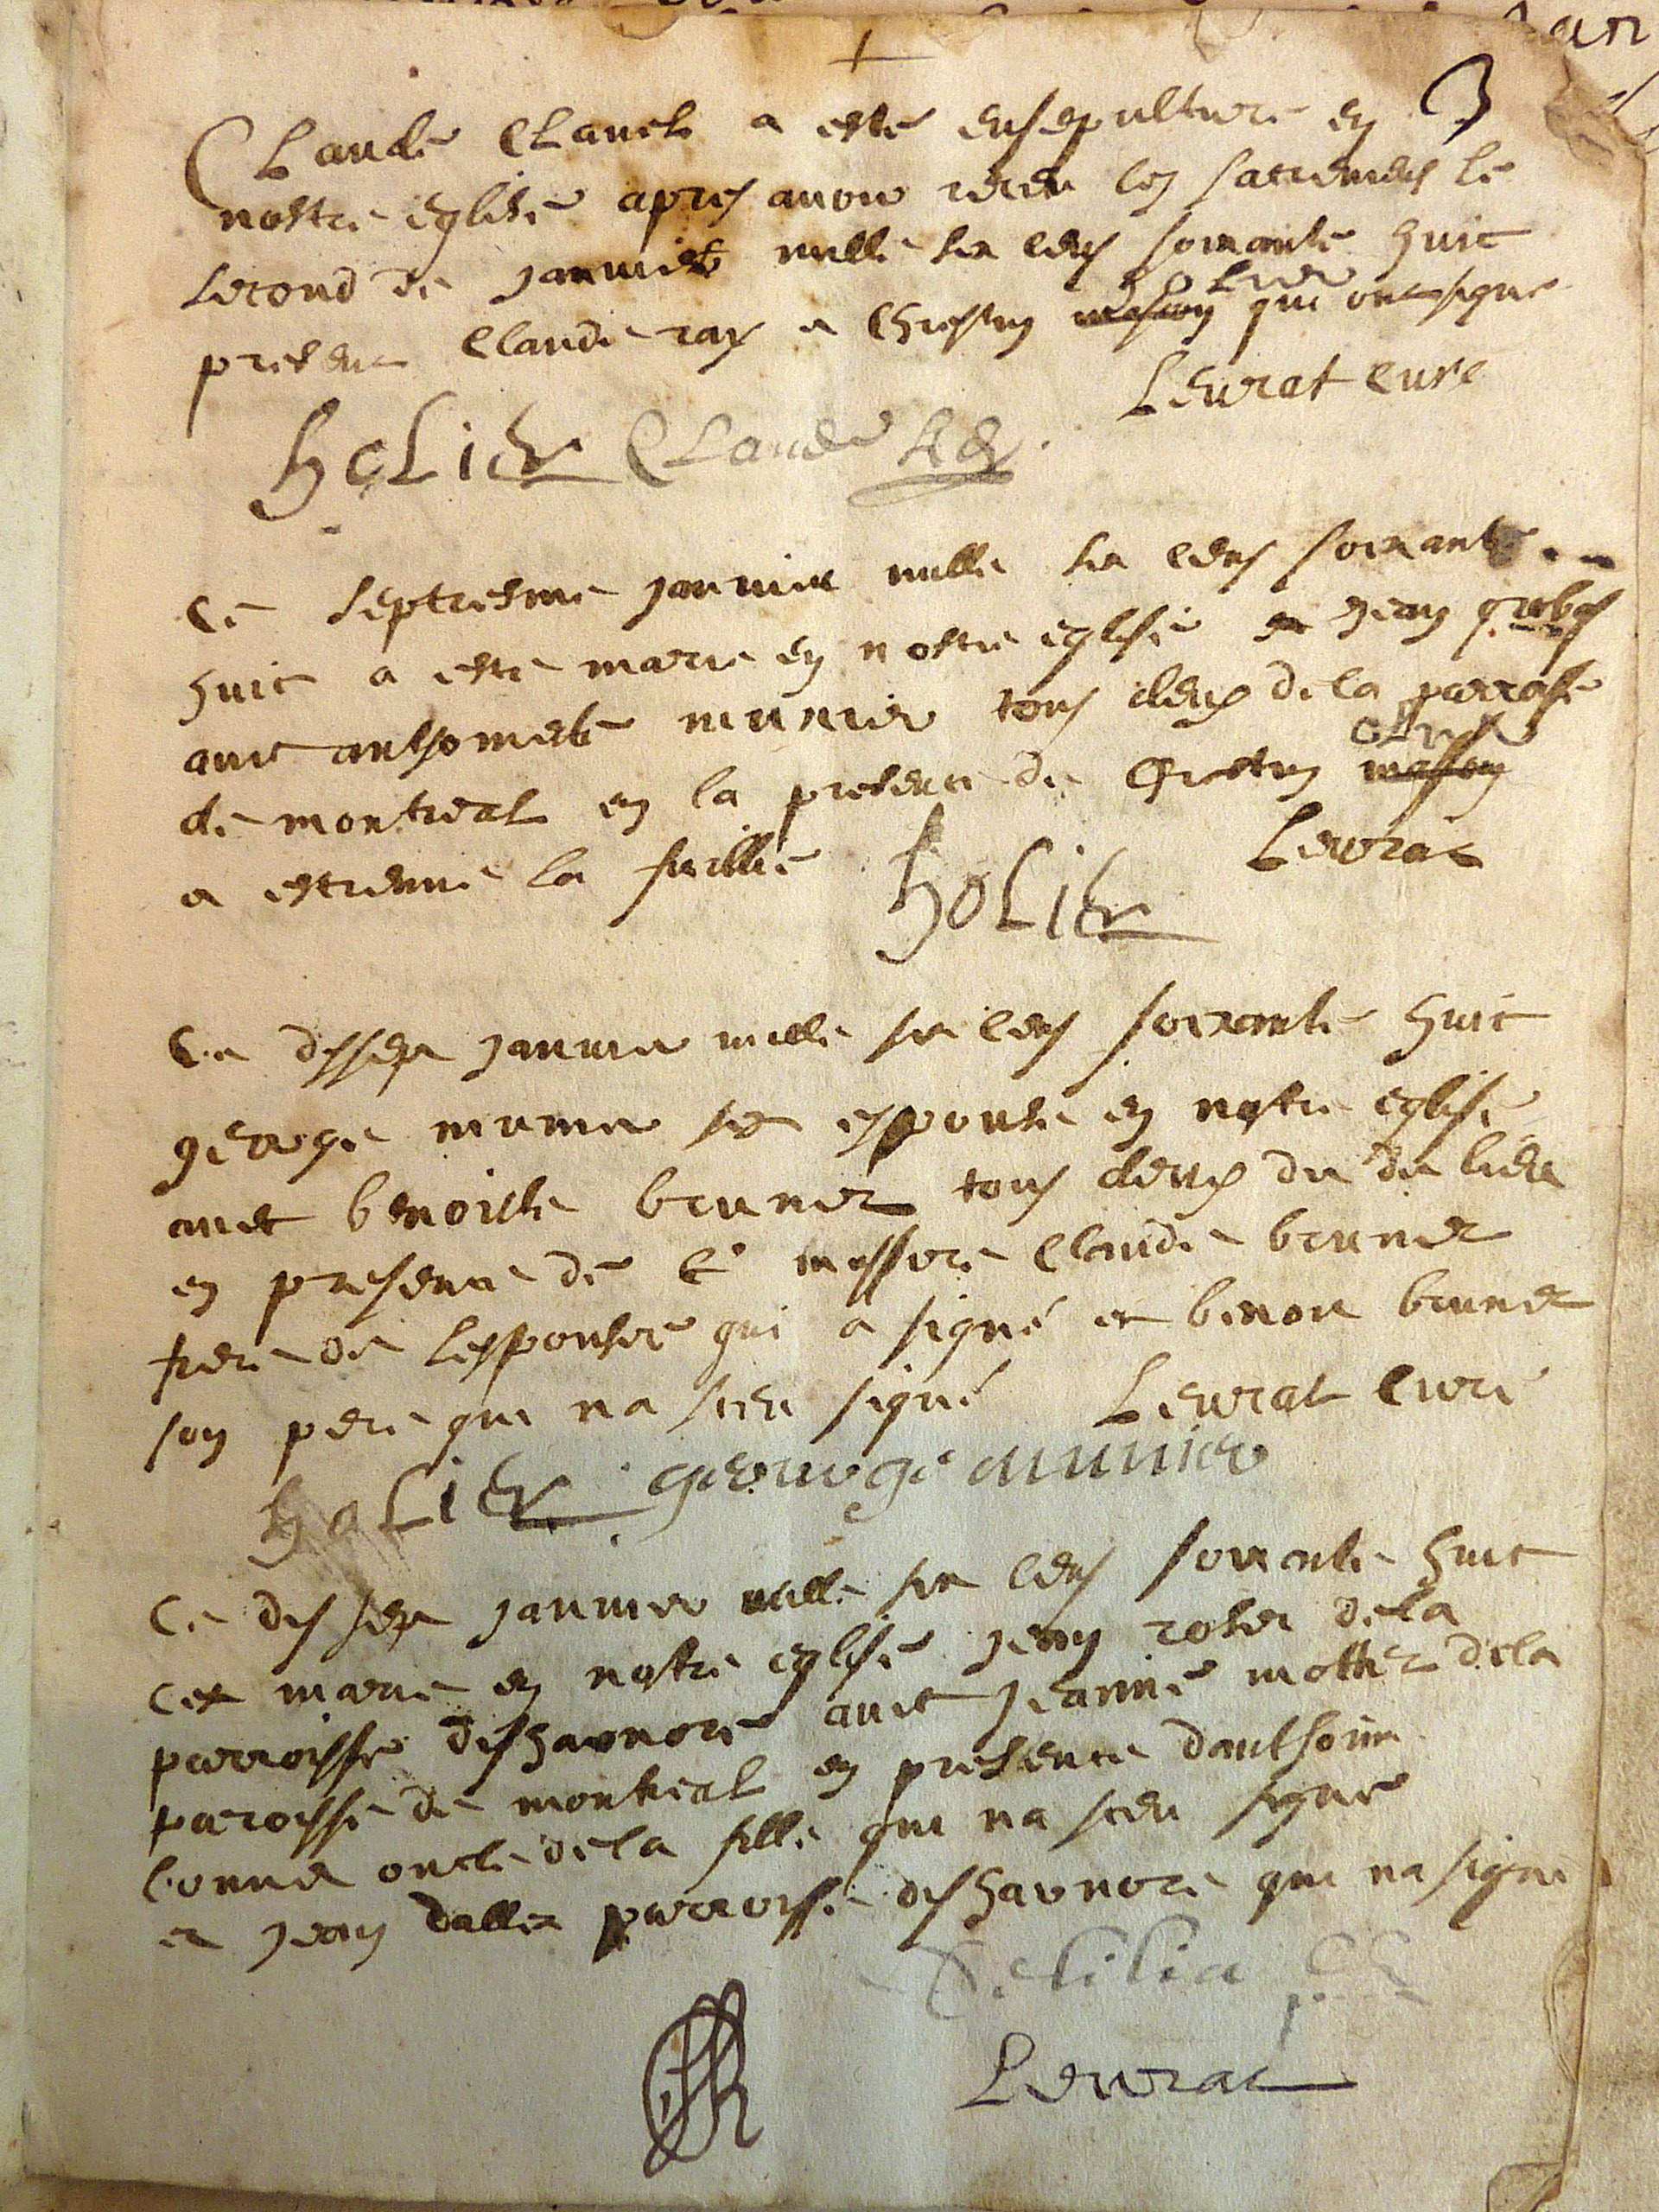 Claude Clauel a esté ensepulturé en
nostre eglise apres auoir receu les sacremens le
second de januier mille six cens soixante huit
holier
present Claude ray et Chrestin qui ont signe
Leurat curé
holier Claude Rey
Ce septiesme januier mille six cens soixante
huit a este marie en nostre eglise jean
auec anthoinete munier tous deux de la parroisse
de montreal en la presence de Chrestin
a estienne la
Leurat
holier
Ce dissept januier mille six cens soixante huit
george munier sest espousé en nostre eglise
auec benoiste brunet tous deux du dit lieu
en presence de messire Claude brunet
frere de lespousée qui a signé et benoit brunet
son pere qui na sceu signé Leurat curé
holier george munier
Ce dis sept januier mille six cens soixante huit
cest marie en nostre eglise jean roset de la
parroisse deschaunore auec jeanne mottet de la
paroisse de montreal en presence danthoine
bonnet oncle de la fille qui na sceu signe
et jean dallet parroisse deschaunore qui na signe
Delilia
Leurat